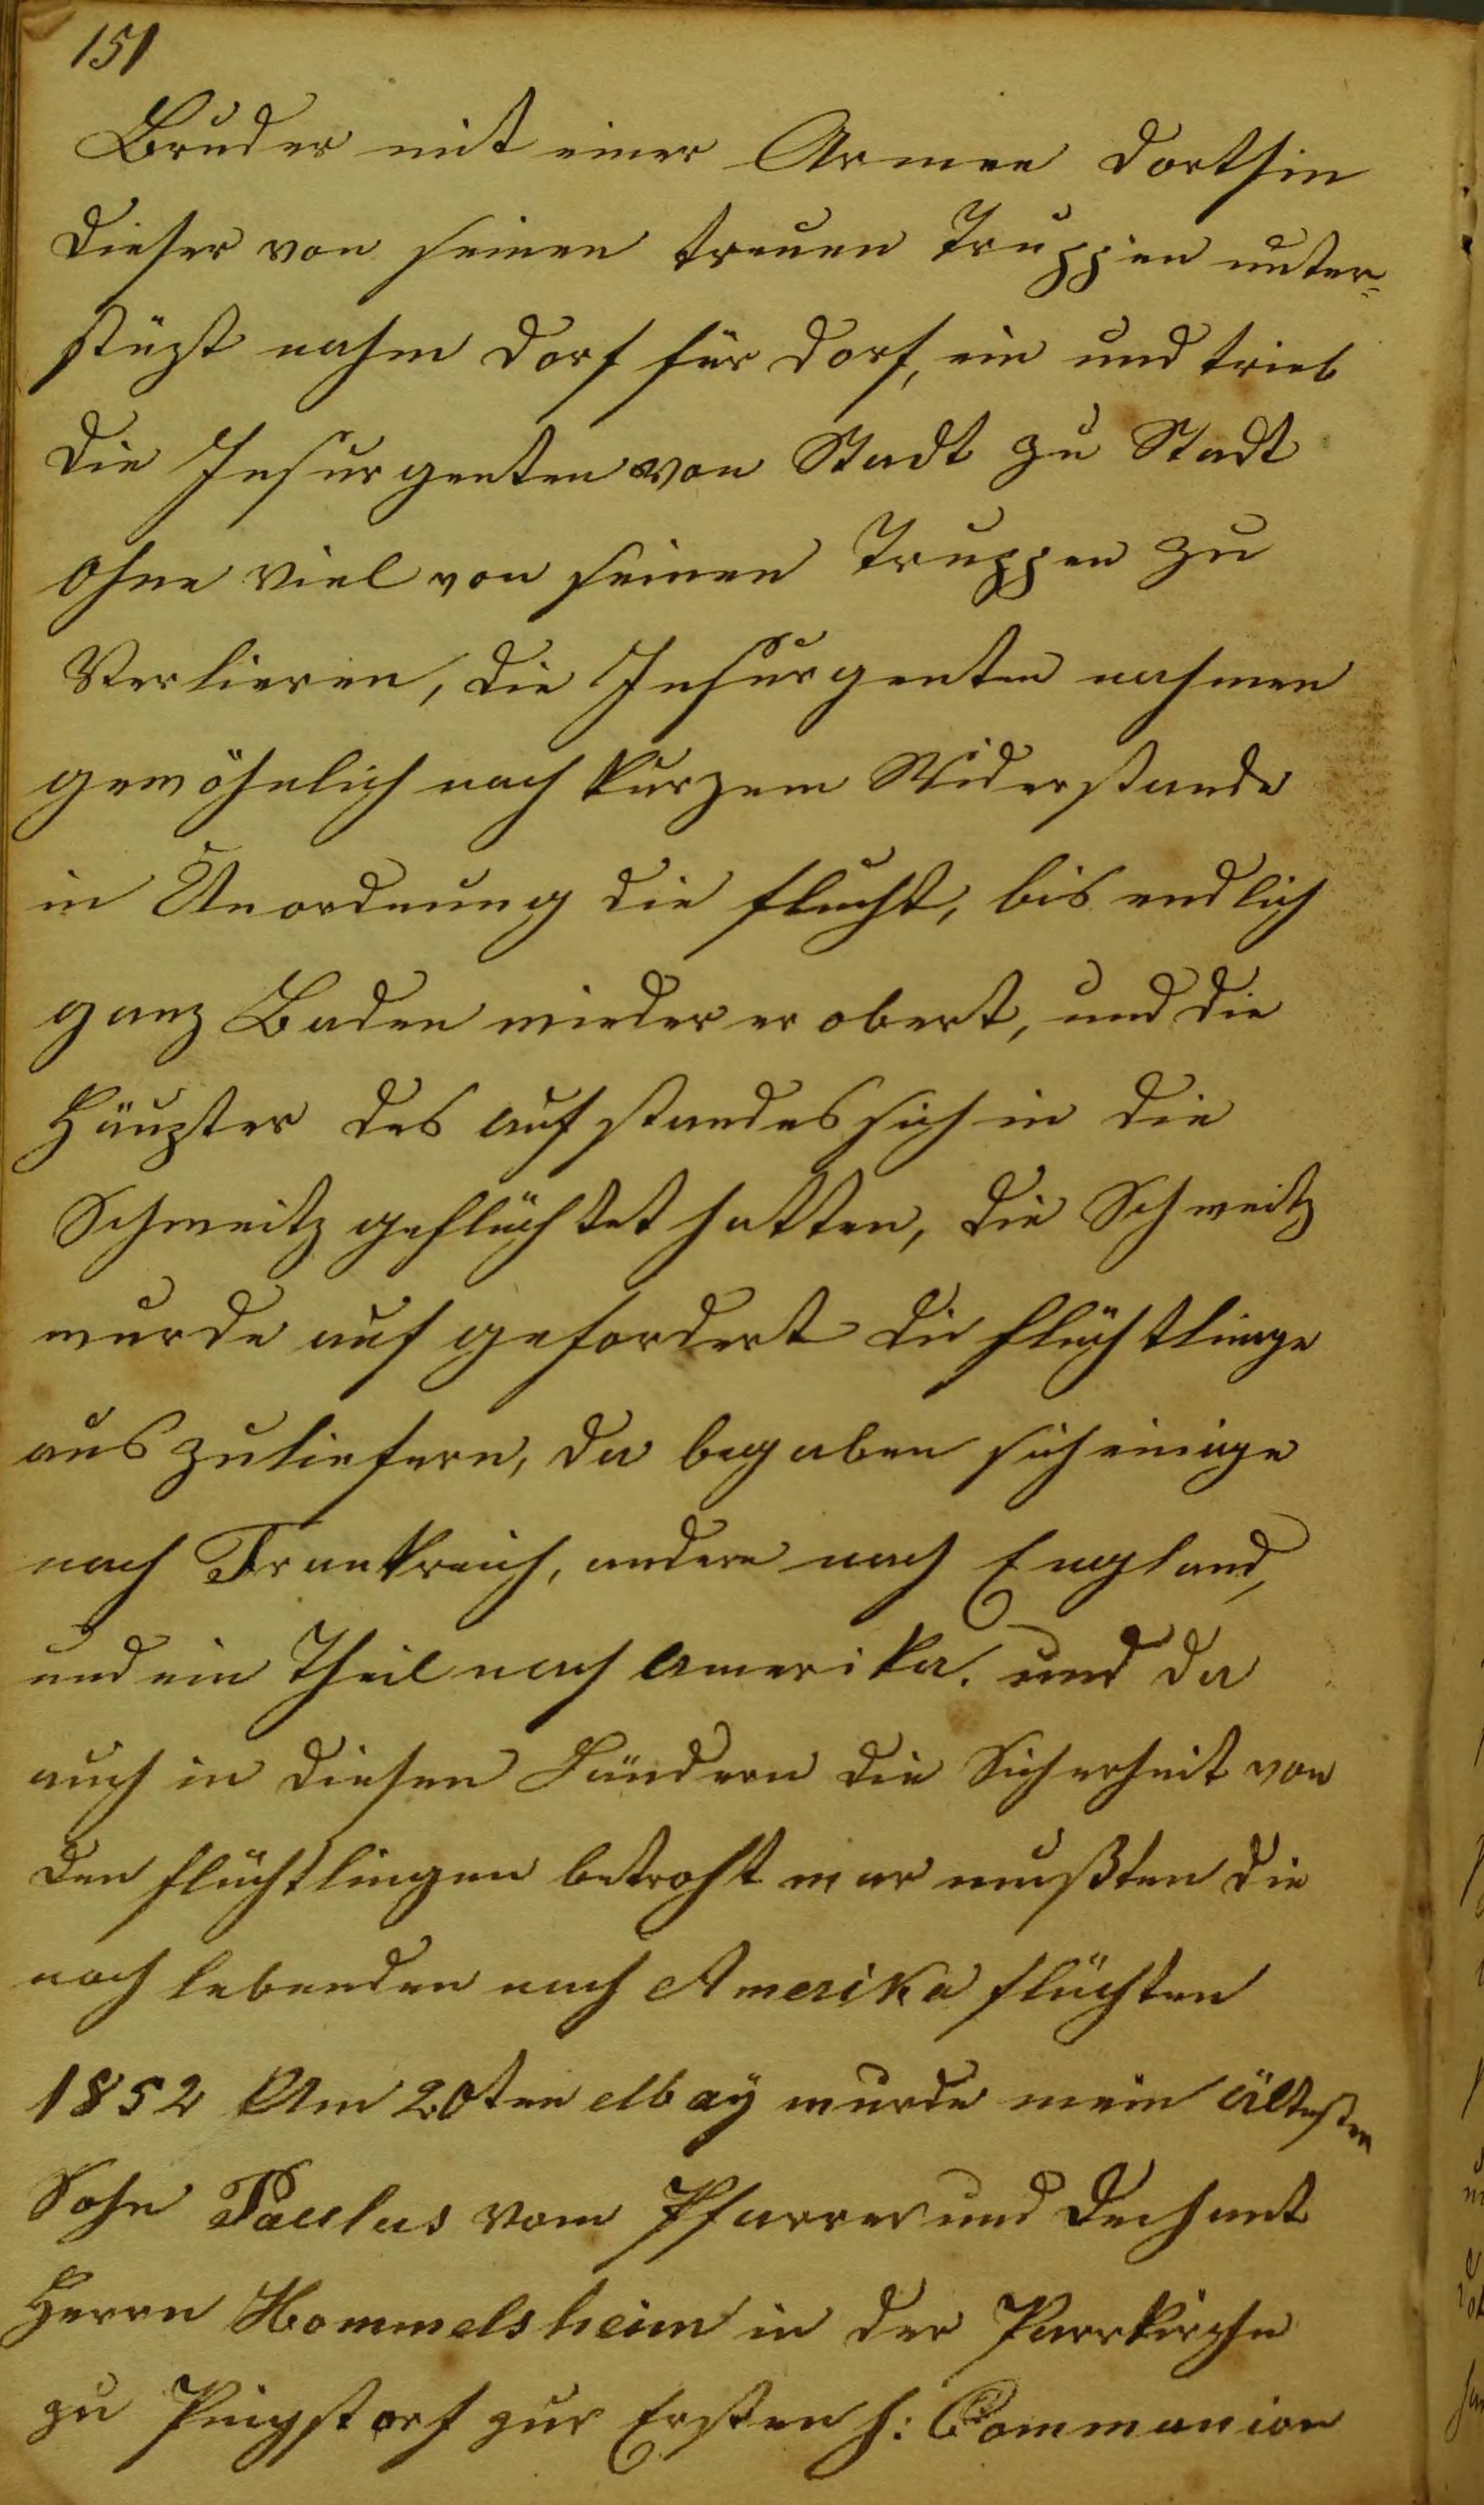 151
Bruder mit einer Armee dorthin
dieser von seinen treuen Truppen unter=
stüzt nahm Dorf für Dorf, ein und trieb
die Insurgenten von Stadt zu Stadt
ohne viel von seinen Truppen zu
Verlieren, die Insurgenten nahmen
gewöhnlich nach kurzem Widerstande
in Unordnung die flucht, bis endlich
ganz Baden wieder erobert, und die
Häupter des aufstandes sich in die
Schweitz geflüchtet hatten, die Schweitz
wurde auf gefordert die flüchtlinge
auszuliefern, da begaben sich einige
nach Frankreich, andere nach England,
und ein Theil nach Amerika. und da
auch in diesen Ländern die Sicherheit von
den flüchtlingen betroht war mußten die
noch lebenden nach Amerika flüchten
1852 Am 20ten May wurde mein ältesten
Sohn Paulus vom Pfarrer und Dechant
Herrn Hommelsheim in der Parrkirche
zu Pingstorf zur Ersten h: Communion